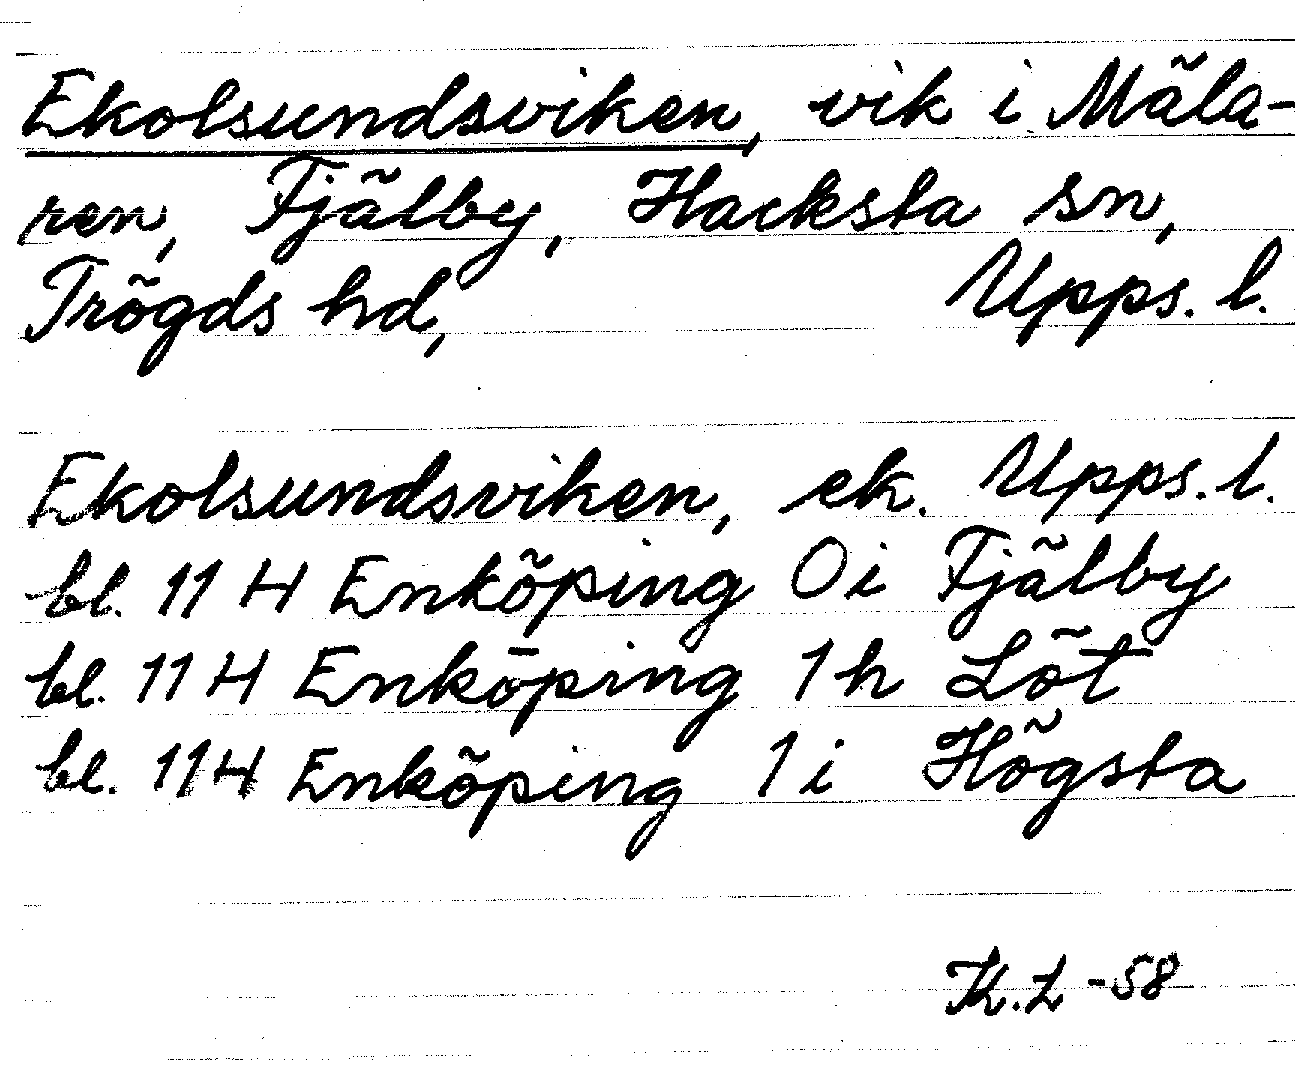 Ekolsundsviken, vik i Mäla-
ren, Fjälby, Hacksta sn,
Trögds hd, Upps. l.
Ekolsundsviken, ek. Upps. l.
bl. 11 H Enköping 0 i Fjälby
bl. 11 H Enköping 1 h Löt
bl. 11 H Enköping 1 i Högsta
K.L -58